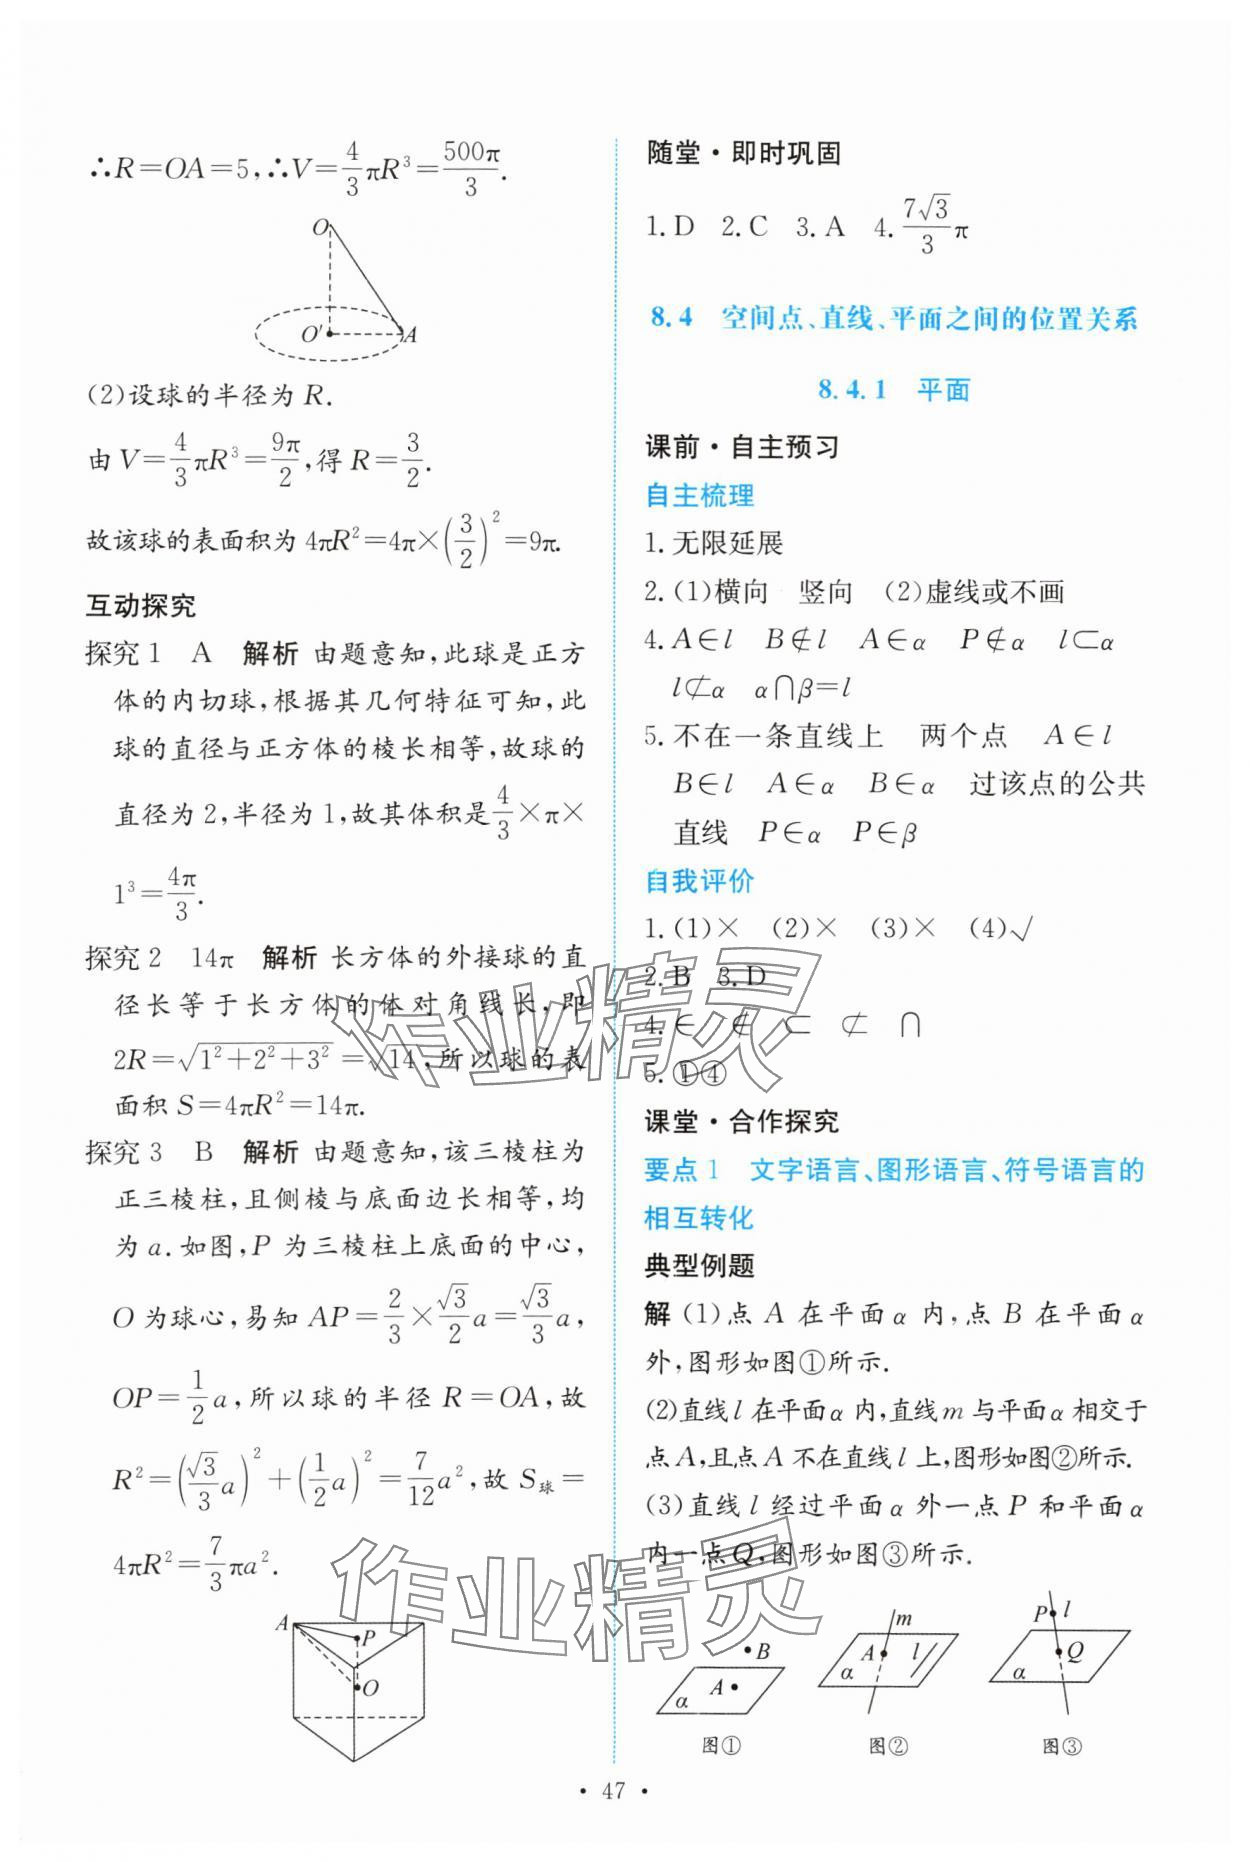 ∴R=OA=5,∴V=4/3πR³=500π/3.
O
O′ A
(2)设球的半径为 R.
由 V=4/3πR³=9π/2,得 R=3/2.
故该球的表面积为 4πR²=4π×(3/2)²=9π.
互动探究
探究1 A 解析 由题意知,此球是正方
体的内切球,根据其几何特征可知,此
球的直径与正方体的棱长相等,故球的
直径为 2,半径为 1,故其体积是4/3×π×
1³=4π/3.
探究2 14π 解析 长方体的外接球的直
径长等于长方体的体对角线长,即
2R=√(1²+2²+3²)=√14,所以球的表
面积 S=4πR²=14π.
探究3 B 解析 由题意知,该三棱柱为
正三棱柱,且侧棱与底面边长相等,均
为 a.如图,P 为三棱柱上底面的中心,
O 为球心,易知 AP=2/3×√3/2a=√3/3a,
OP=1/2a,所以球的半径 R=OA,故
R²=(√3/3a)²+(1/2a)²=7/12a²,故 S球=
4πR²=7/3πa².
A
P
O
随堂·即时巩固
1.D 2.C 3.A 4.7√3/3π
8.4 空间点、直线、平面之间的位置关系
8.4.1 平面
课前·自主预习
自主梳理
1.无限延展
2.(1)横向 竖向 (2)虚线或不画
4.A∈l B∉l A∈α P∉α l⊂α
l⊄α α∩β=l
5.不在一条直线上 两个点 A∈l
B∈l A∈α B∈α 过该点的公共
直线 P∈α P∈β
自我评价
1.(1)× (2)× (3)× (4)√
2.B 3.D
4.∈ ∉ ⊂ ⊄ ∩
5.①④
课堂·合作探究
要点1 文字语言、图形语言、符号语言的
相互转化
典型例题
解 (1)点 A 在平面 α 内,点 B 在平面 α
外,图形如图①所示.
(2)直线 l 在平面 α 内,直线 m 与平面 α 相交于
点 A,且点 A 不在直线 l 上,图形如图②所示.
(3)直线 l 经过平面 α 外一点 P 和平面 α
内一点 Q,图形如图③所示.
B
A
α
图①
m
A l
α
图②
P l
Q
α
图③
· 47 ·
作业精灵
作业精灵